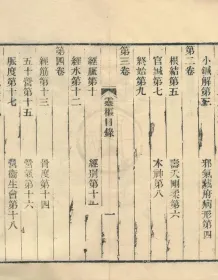 小鍼解第三　邪氣藏府病形第四
第二卷
根結第五　壽夭剛柔第六
官鍼第七　本神第八
終始第九
第三卷
靈樞目錄　一
經脈第十　經別第十一
經水第十二
第四卷
經筋第十三　骨度第十四
五十營第十五　營氣第十六
脈度第十七　營衛生會第十八